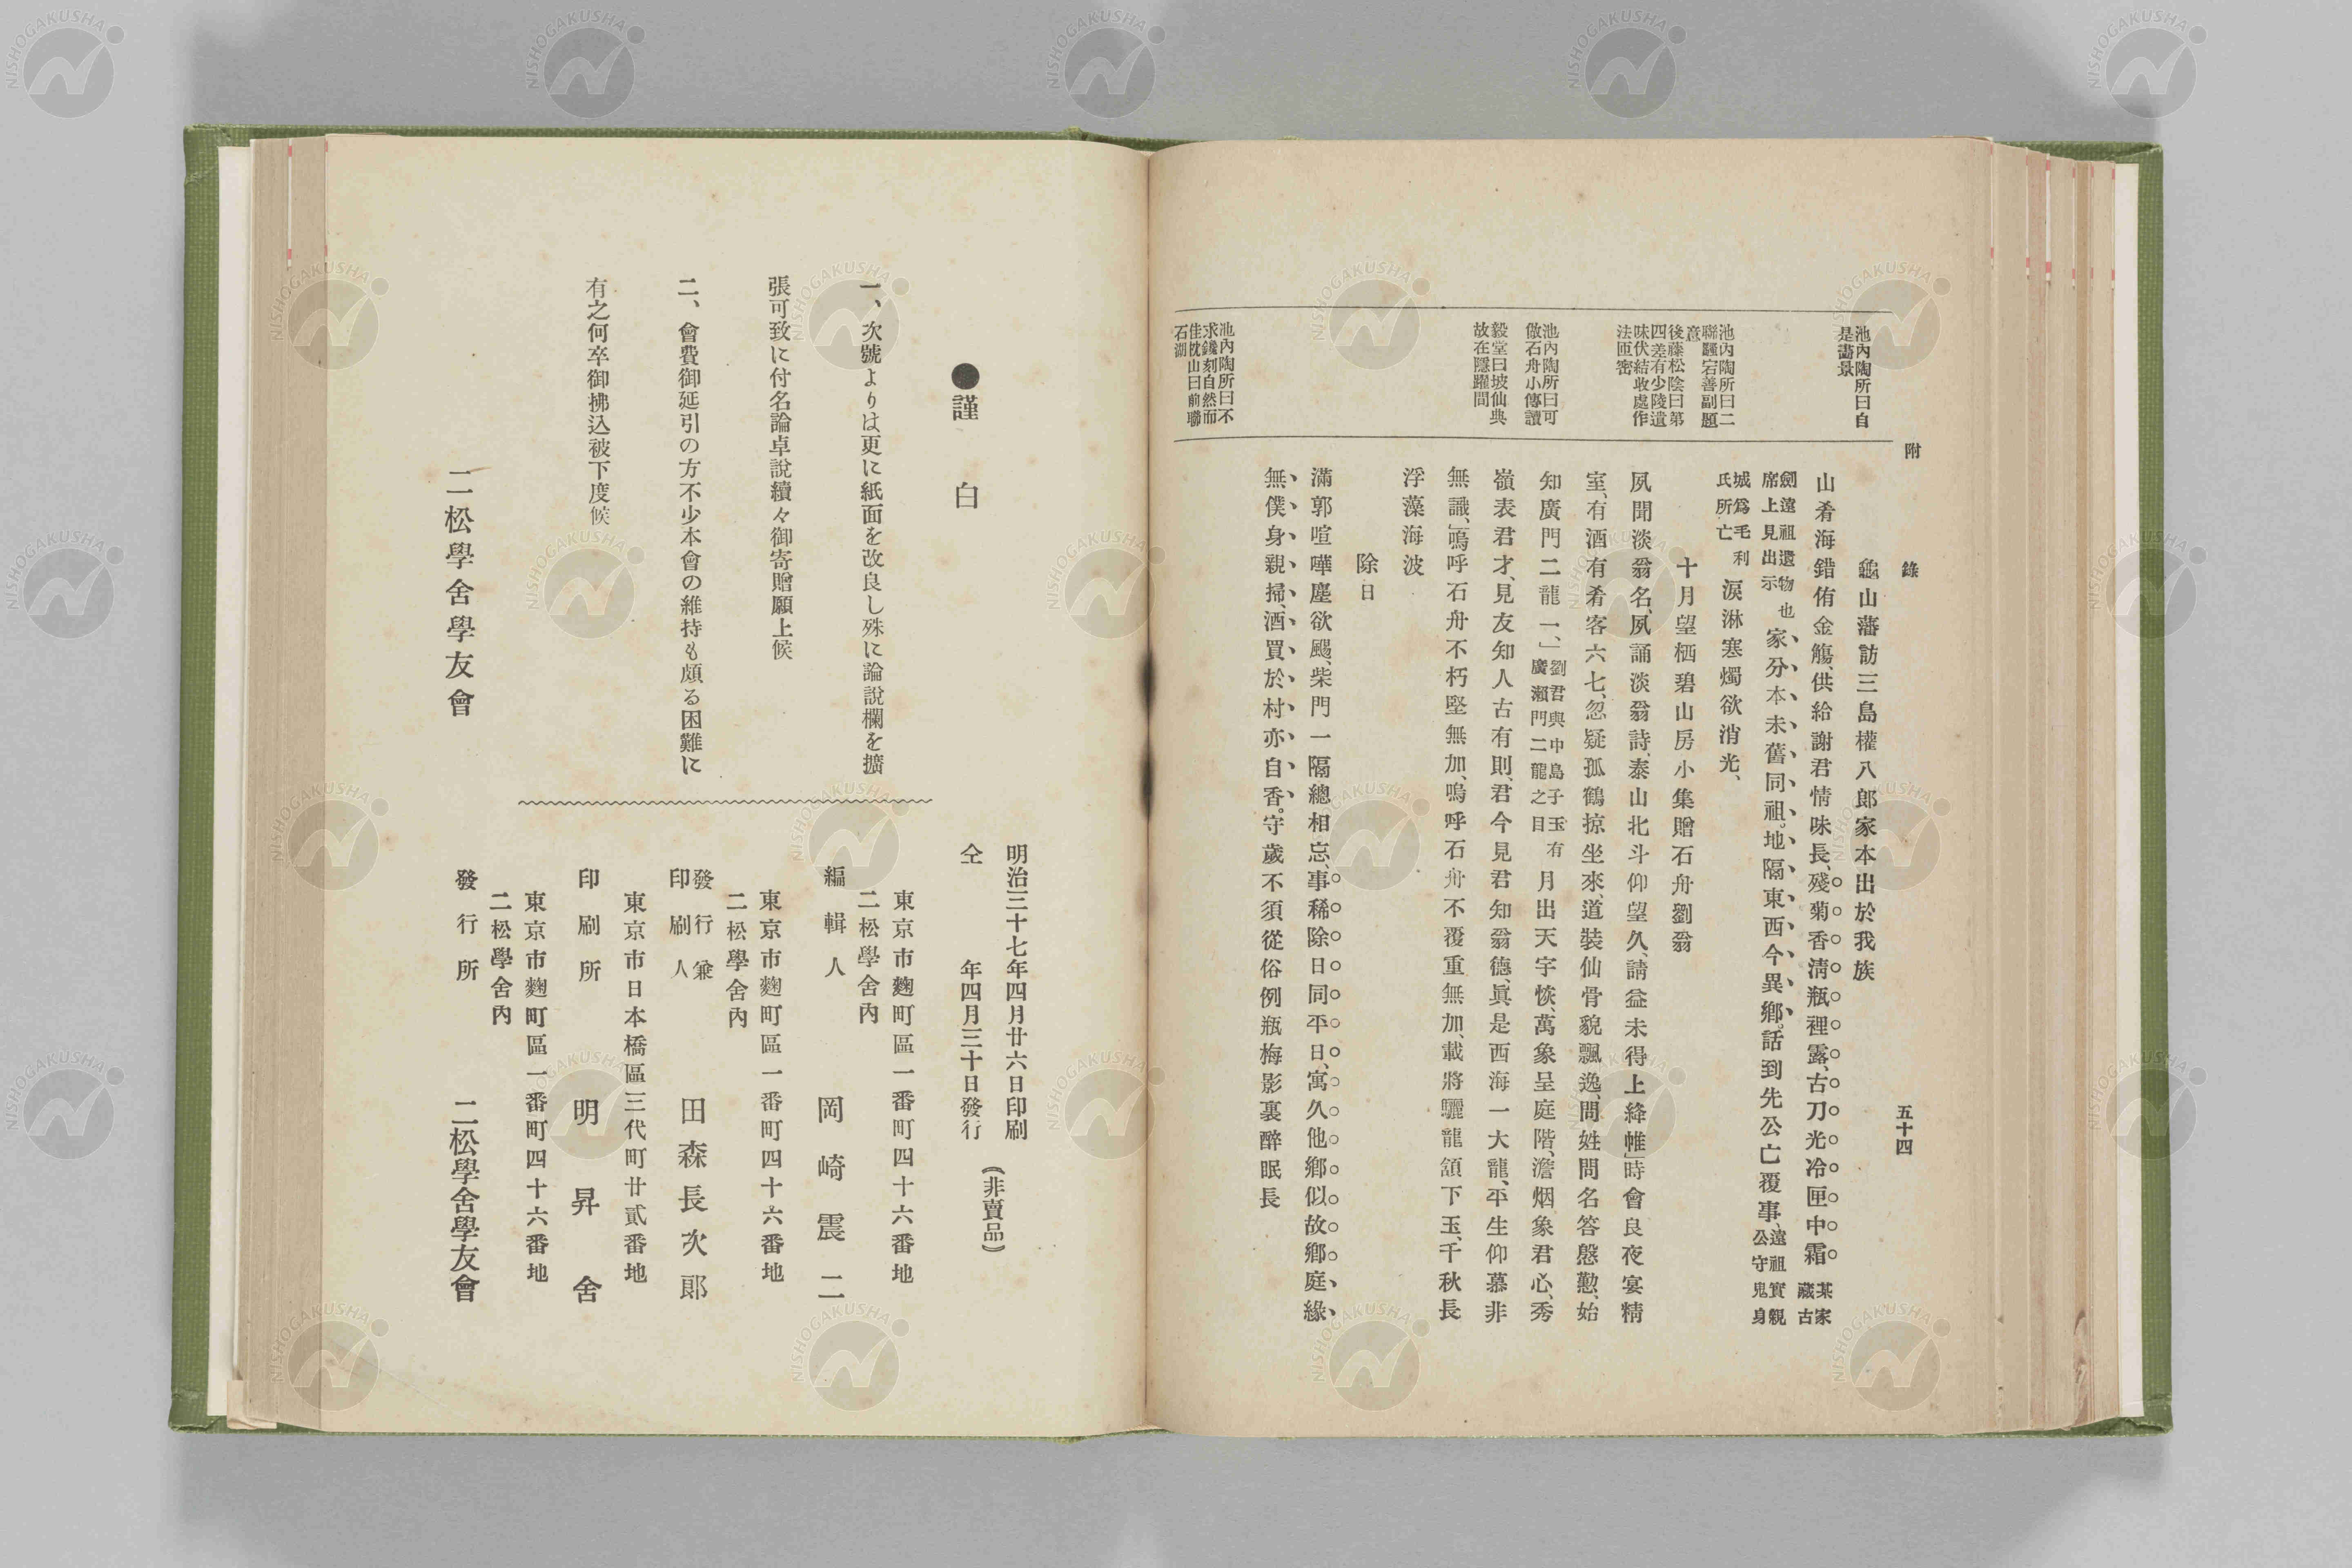 附錄
五十四
池內陶所曰自
是畵景
池內陶所曰二
聯驪宕善副題
意
後藤松陰曰第
四差有少陵遺
味伏結收處作
法匝密
池內陶所曰可
倣石舟小傳讀
毅堂曰坡仙典
故在隱躍間
池內陶所曰不
求鑱刻自然而
佳枕山曰前聯
石湖
龜山藩訪三島權八郎家本出於我族
山肴海錯侑金觴、供給謝君情味長、殘菊香淸瓶裡露、古刀光冷匣中霜。某家藏古
劍遠祖遺物也席上見出示家分本末舊同祖。地隔東西今異鄕。話到先公亡覆事、遠祖實親公守鬼身
城爲毛利氏所亡淚淋寒燭欲消光、
十月望栖碧山房小集贈石舟劉翁
夙聞淡翁名、夙誦淡翁詩、泰山北斗仰望久、請益未得上絳帷」時會良夜宴精
室、有酒有肴客六七、忽疑孤鶴掠坐來、道裝仙骨貌飄逸、問姓問名答慇懃、始
知廣門二龍一、」劉君與中島子玉有廣瀨門二龍之目月出天宇恢、萬象呈庭階、澹烟象君心、秀
嶺表君才、見友知人古有則、君今見君知翁德、眞是西海一大龍、平生仰慕非
無識、」嗚呼石舟不朽堅無加、嗚呼石舟不覆重無加、載將驪龍頷下玉、千秋長
浮藻海波
除日
滿郭喧嘩塵欲颺、柴門一隔總相忘、事稀除日同平日、寓久他鄕似故鄕。庭緣
無僕身親掃、酒買於村亦自香。守歲不須從俗例瓶梅影裏醉眠長
●謹白
一、次號よりは更に紙面を改良し殊に論說欄を擴
張可致に付名論卓說續々御寄贈願上候
二、會費御延引の方不少本會の維持も頗る困難に
有之何卒御拂込被下度候
二松學舍學友會
明治三十七年四月廿六日印刷
仝年四月三十日發行
（非賣品）
東京市麴町區一番町四十六番地
二松學舍內
編輯人 岡崎震二
東京市麴町區一番町四十六番地
二松學舍內
發行兼
印刷人 田森長次郎
東京市日本橋區三代町廿貳番地
印刷所 明昇舍
東京市麴町區一番町四十六番地
二松學舍內
發行所 二松學舍學友會